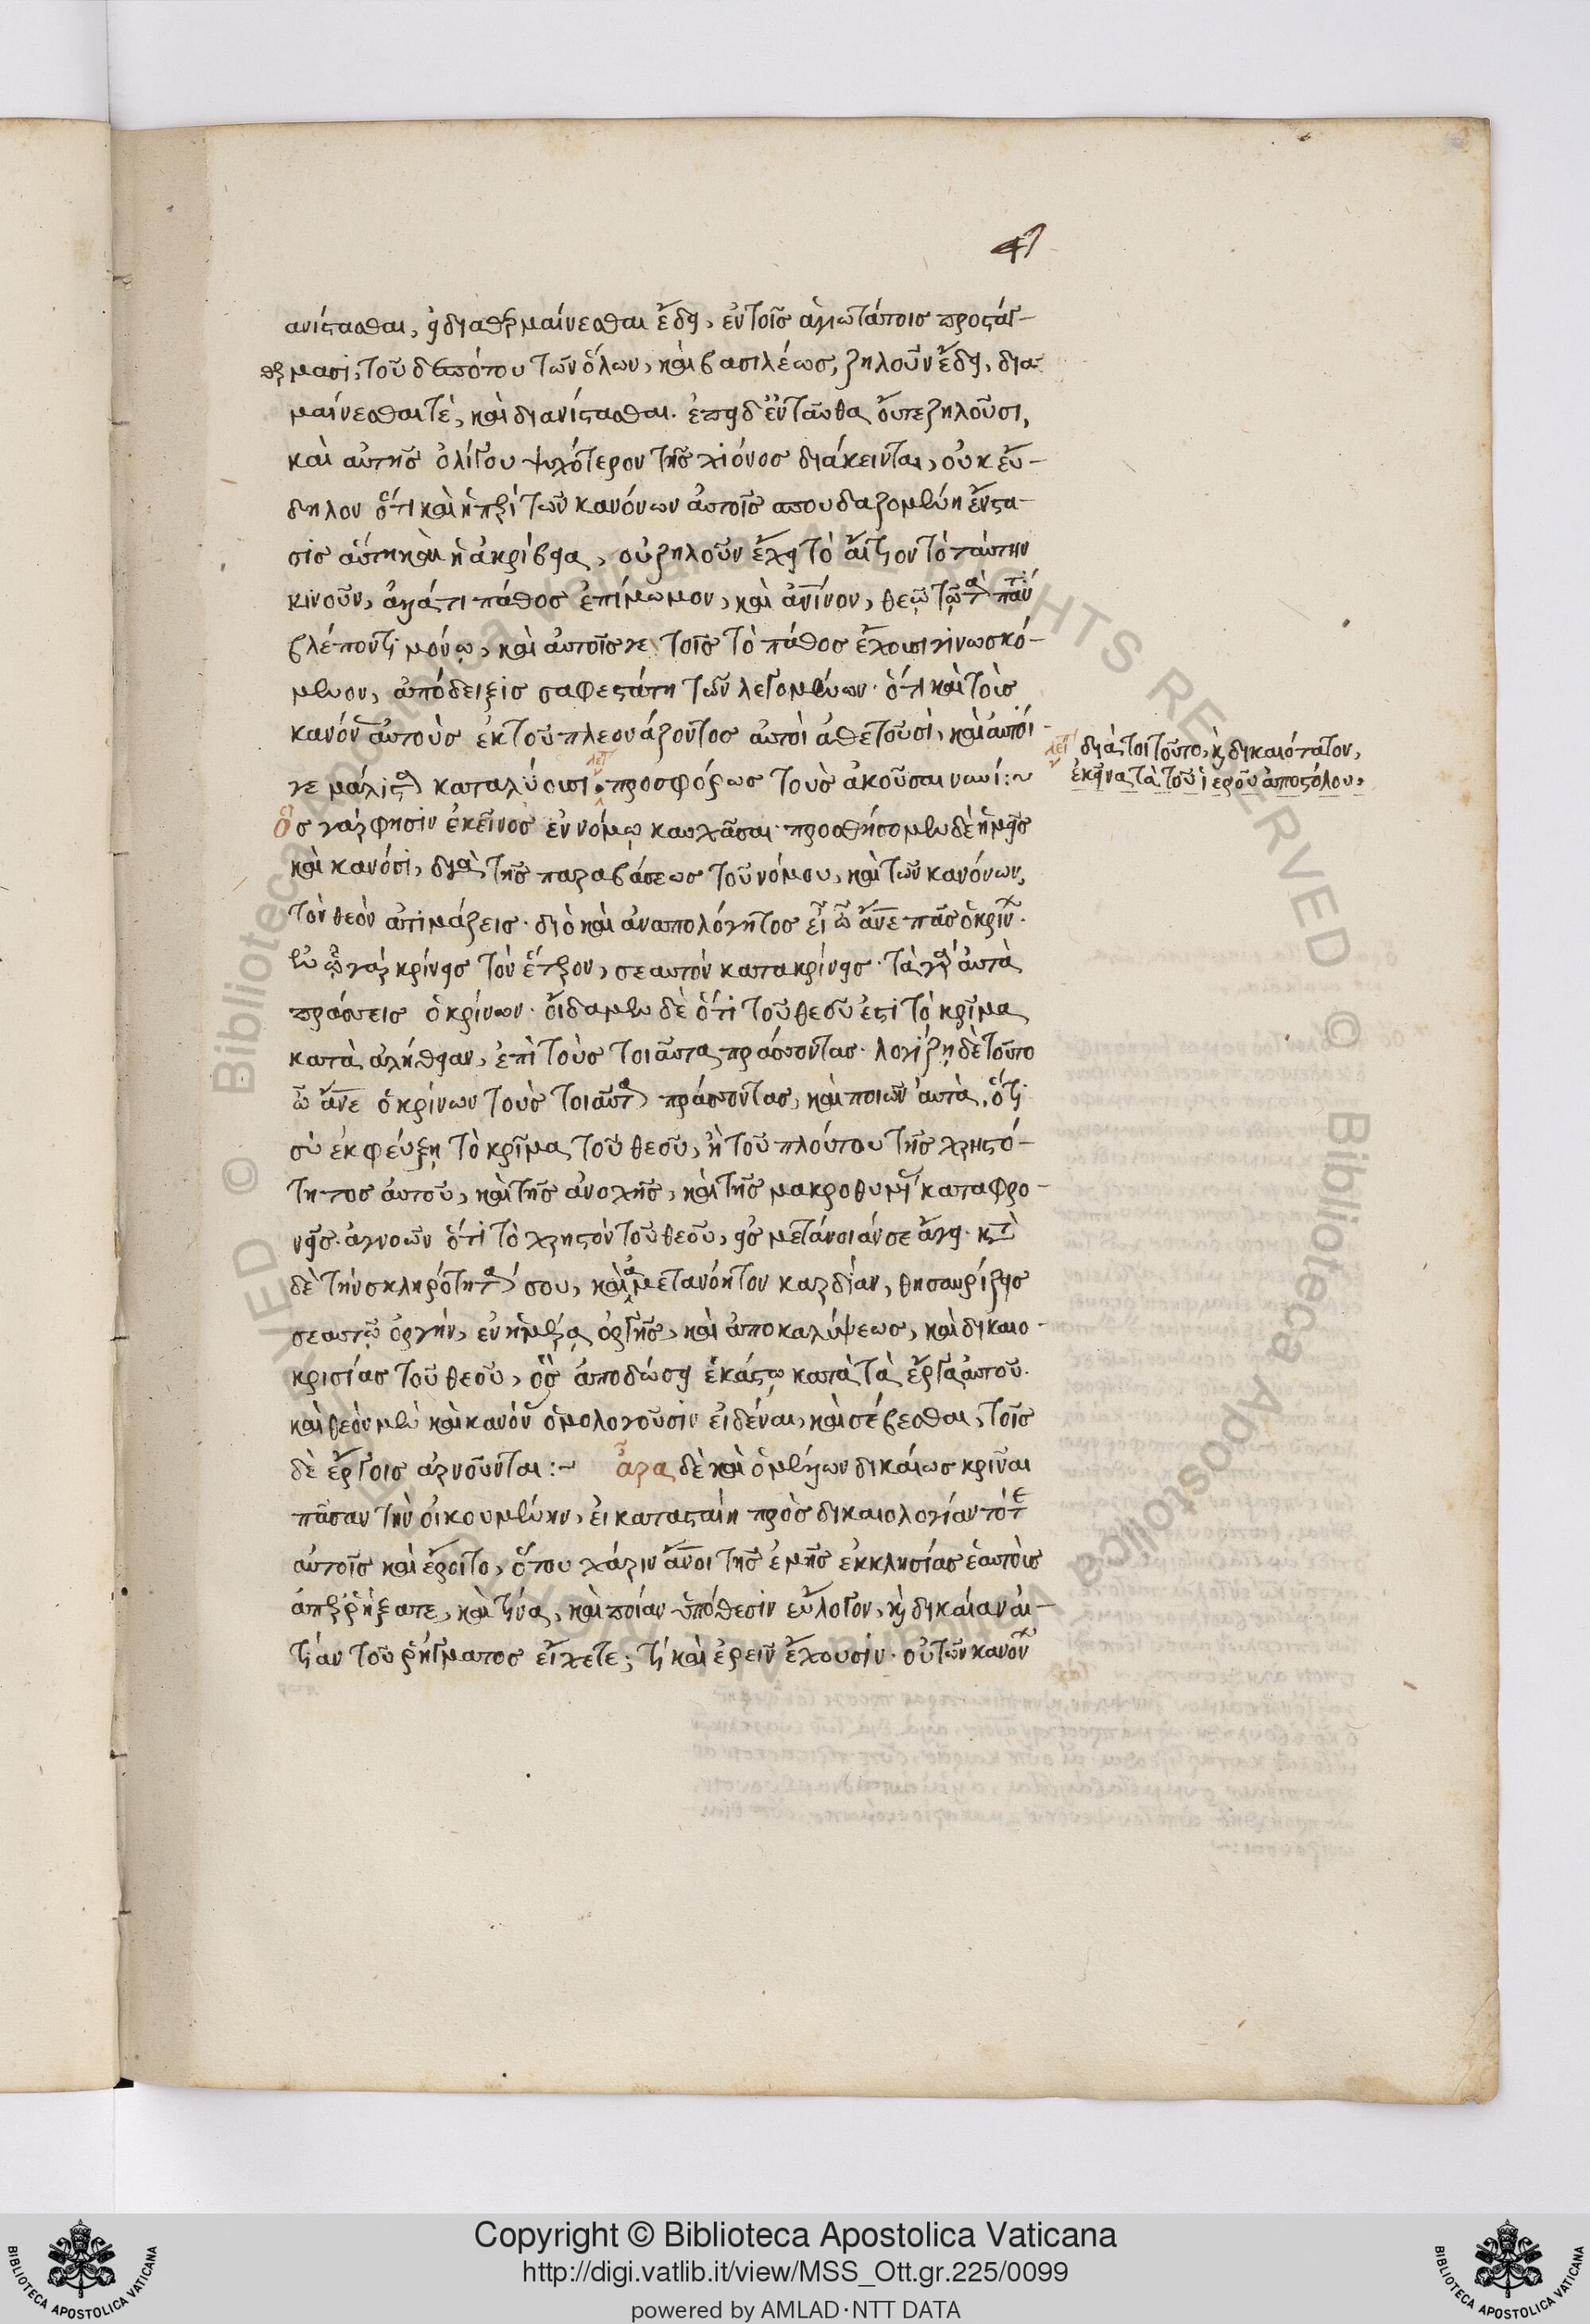 41
ανίστασθαι, ἢ διαθερμαίνεσθαι ἔδει, ἐν τοῖς ἁγιωτάτοις προστάγ-
μασι, τοῦ δεσπότου τῶν ὅλων, καὶ βασιλέως, ζηλοῦν ἔδει, δια
θερ
μαίνεσθαι τὲ, καὶ διανίστασθαι. ἐπεὶ δ' ἐνταῦθα οὔτε ζηλοῦσι,
καὶ αὐτῆς ὀλίγου ψυχότερον τῆς χιόνος διάκεινται, οὐκ εὔ-
δηλον ὅτι καὶ ἡ περὶ τῶν κανόνων αὐτοῖς σπουδαζομένη ἔνστα-
σις αὕτη καὶ ἡ ἀκρίβεια, οὐ ζηλοῦν ἔχει τὸ αἴτιον τὸ ταύτην
κινοῦν, ἀλλά τι πάθος ἐπίμωμον, καὶ ἀνίνον, θεῷ τῷ τὰ πάντα
βλέποντι μόνῳ, καὶ αὐτοῖς γε τοῖς τὸ πάθος ἔχουσι γινωσκό-
μενον, ἀπόδειξις σαφεστάτη τῶν λεγομένων. ὅτι καὶ τοὺς
κανόνας αὐτοὺς ἐκ τοῦ πλεονάζοντος αὐτοὶ ἀθετοῦσι, καὶ αὐτοί
γε μάλιστα καταλύουσι. προσφόρως τοὺς ἀκοῦσαι νυνί :~
λείπ διά τοι τοῦτο, ἢ δικαιότατον,
ἐκεῖνα τὰ τοῦ ἱεροῦ ἀποστόλου,
ὃς γάρ φησιν ἐκεῖνος ἐν νόμῳ καυχᾶσαι. προσθήσομεν δὲ ἡμεῖς
καὶ κανόσι, διὰ τῆς παραβάσεως τοῦ νόμου, καὶ τῶν κανόνων,
τὸν θεὸν ἀτιμάζεις. διὸ καὶ ἀναπολόγητος εἶ ὦ ἄνε πᾶς ὁ κρίνων.
ἐν ᾧ γὰρ κρίνεις τὸν ἕτερον, σεαυτὸν κατακρίνεις. τὰ γὰρ αὐτὰ
πράσσεις ὁ κρίνων. οἴδαμεν δὲ ὅτι τοῦ θεοῦ ἐστὶ τὸ κρῖμα
κατὰ ἀλήθειαν, ἐπὶ τοὺς τοιαῦτα πράσσοντας. λογίζῃ δὲ τοῦτο
ὦ ἄνε ὁ κρίνων τοὺς τοιαῦτα πράσσοντας, καὶ ποιῶν αὐτὰ, ὅτι
σὺ ἐκφεύξῃ τὸ κρῖμα τοῦ θεοῦ, ἢ τοῦ πλούτου τῆς χρηστό-
τητος αὐτοῦ, καὶ τῆς ἀνοχῆς, καὶ τῆς μακροθυμίας καταφρο-
νεῖς. ἀγνοῶν ὅτι τὸ χρηστὸν τοῦ θεοῦ, εἰς μετάνοιάν σε ἄγει. κατὰ
δὲ τὴν σκληρότητά σου, καὶ ἀμετανόητον καρδίαν, θησαυρίζεις
σεαυτῷ ὀργὴν, ἐν ἡμέρᾳ ὀργῆς, καὶ ἀποκαλύψεως, καὶ δικαιο-
κρισίας τοῦ θεοῦ, ὃς ἀποδώσει ἑκάστῳ κατὰ τὰ ἔργα αὐτοῦ.
καὶ θεὸν μὲν καὶ κανόνας ὁμολογοῦσιν εἰδέναι, καὶ σέβεσθαι, τοῖς
δὲ ἔργοις ἀρνοῦνται :~ ἆρα δὲ καὶ ὁ μέλλων δικαίως κρῖναι
πᾶσαν τὴν οἰκουμένην, εἰ κατασταίη πρὸς δικαιολογίαν τότε
αὐτοῖς καὶ ἔροιτο, ὅτου χάριν ἄνοι τῆς ἐμῆς ἐκκλησίας ἑαυτοὺς
ἀπερρήξατε, καὶ τίνα, καὶ ποίαν ὑπόθεσιν εὔλογον, ἢ δικαίαν αἰ-
τίαν τοῦ ῥήγματος εἴχετε; τί καὶ ἐρεῖν ἔχουσιν. οὐ τῶν κανόνων
Copyright © Biblioteca Apostolica Vaticana
http://digi.vatlib.it/view/MSS_Ott.gr.225/0099
powered by AMLAD·NTT DATA